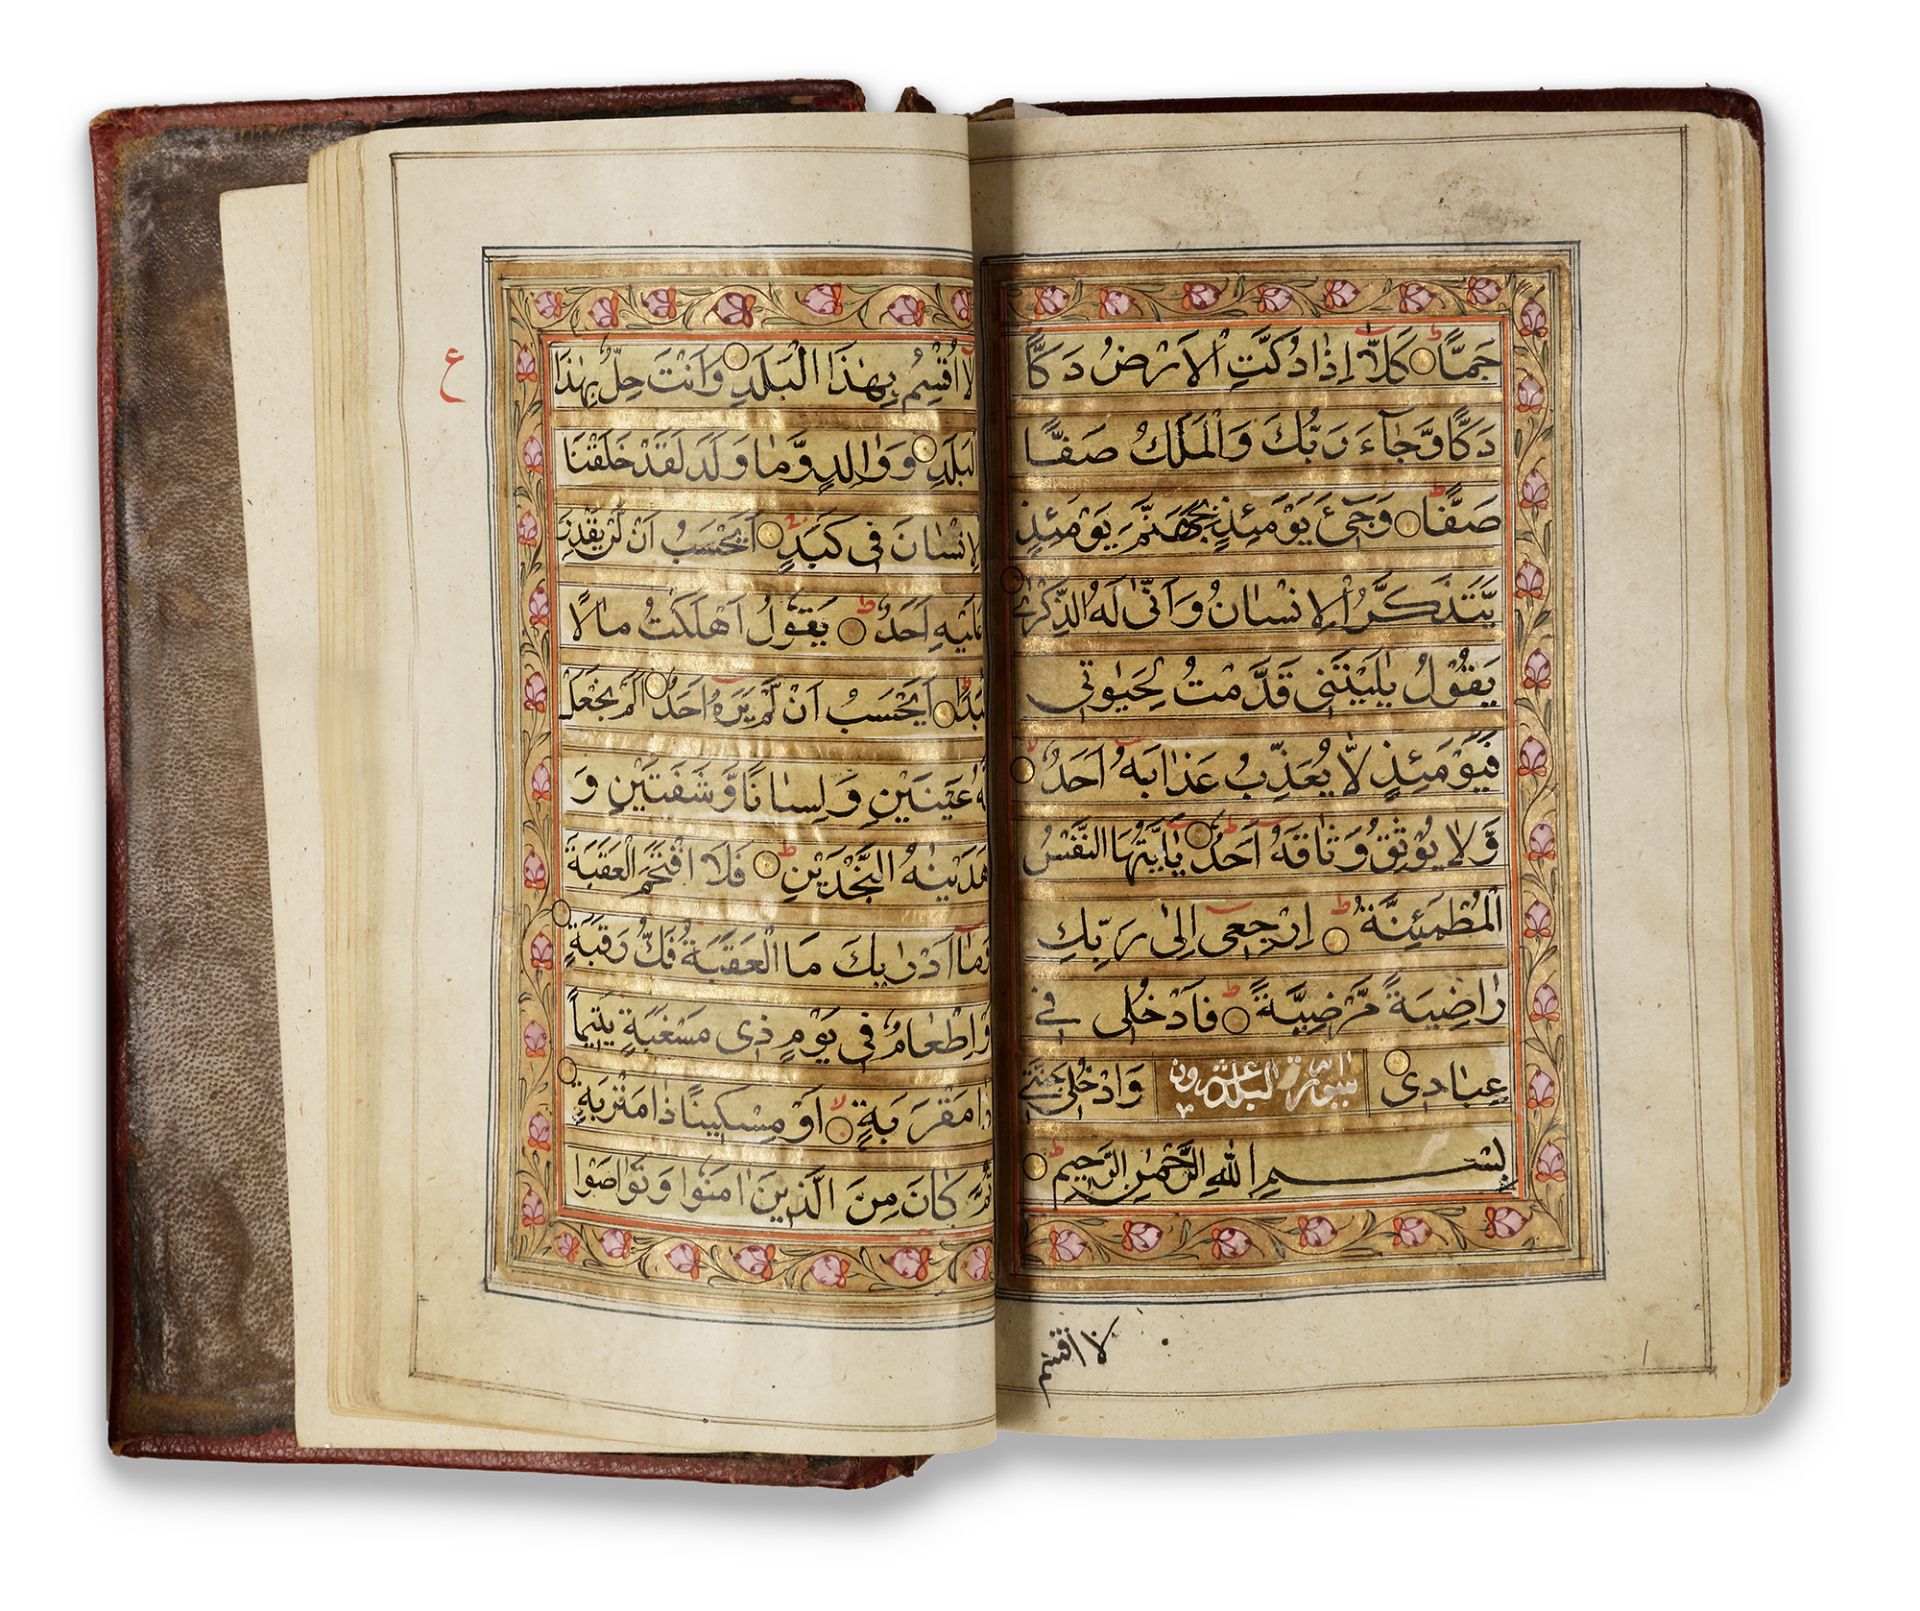 جَمًّا كَلَّا إِذَا دُكَّتِ الْاَرْضُ دَكًّا
دَكًّا وَّجَآءَ رَبُّكَ وَالْمَلَكُ صَفًّا
صَفًّا وَجِیْٓءَ یَوْمَئِذٍ بِجَهَنَّمَ یَوْمَئِذٍ
یَّتَذَكَّرُ الْاِنْسَانُ وَاَنّٰی لَهُ الذِّكْرٰی
یَقُوْلُ یٰلَیْتَنِیْ قَدَّمْتُ لِحَیٰوتِیْ
فَیَوْمَئِذٍ لَّا یُعَذِّبُ عَذَابَهٗٓ اَحَدٌ
وَّلَا یُوْثِقُ وَثَاقَهٗٓ اَحَدٌ یٰٓاَیَّتُهَا النَّفْسُ
الْمُطْمَئِنَّةُ ارْجِعِیْٓ اِلٰی رَبِّكِ
رَاضِیَةً مَّرْضِیَّةً فَادْخُلِیْ فِیْ
عِبَادِیْ سورة البلد عشرون وَادْخُلِیْ جَنَّتِیْ
بِسْمِ اللهِ الرَّحْمٰنِ الرَّحِیْمِ
لا اقسم
ع
لَآ اُقْسِمُ بِهٰذَا الْبَلَدِ وَاَنْتَ حِلٌّۢ بِهٰذَا
الْبَلَدِ وَوَالِدٍ وَّمَا وَلَدَ لَقَدْ خَلَقْنَا
الْاِنْسَانَ فِیْ كَبَدٍ اَیَحْسَبُ اَنْ لَّنْ یَّقْدِرَ
عَلَیْهِ اَحَدٌ یَقُوْلُ اَهْلَكْتُ مَالًا
لُّبَدًا اَیَحْسَبُ اَنْ لَّمْ یَرَهٗٓ اَحَدٌ اَلَمْ نَجْعَلْ
لَّهٗ عَیْنَیْنِ وَلِسَانًا وَّشَفَتَیْنِ وَ
هَدَیْنٰهُ النَّجْدَیْنِ فَلَا اقْتَحَمَ الْعَقَبَةَ
وَمَآ اَدْرٰىكَ مَا الْعَقَبَةُ فَكُّ رَقَبَةٍ
اَوْ اِطْعَامٌ فِیْ یَوْمٍ ذِیْ مَسْغَبَةٍ یَّتِیْمًا
ذَا مَقْرَبَةٍ اَوْ مِسْكِیْنًا ذَا مَتْرَبَةٍ
ثُمَّ كَانَ مِنَ الَّذِیْنَ اٰمَنُوْا وَتَوَاصَوْا